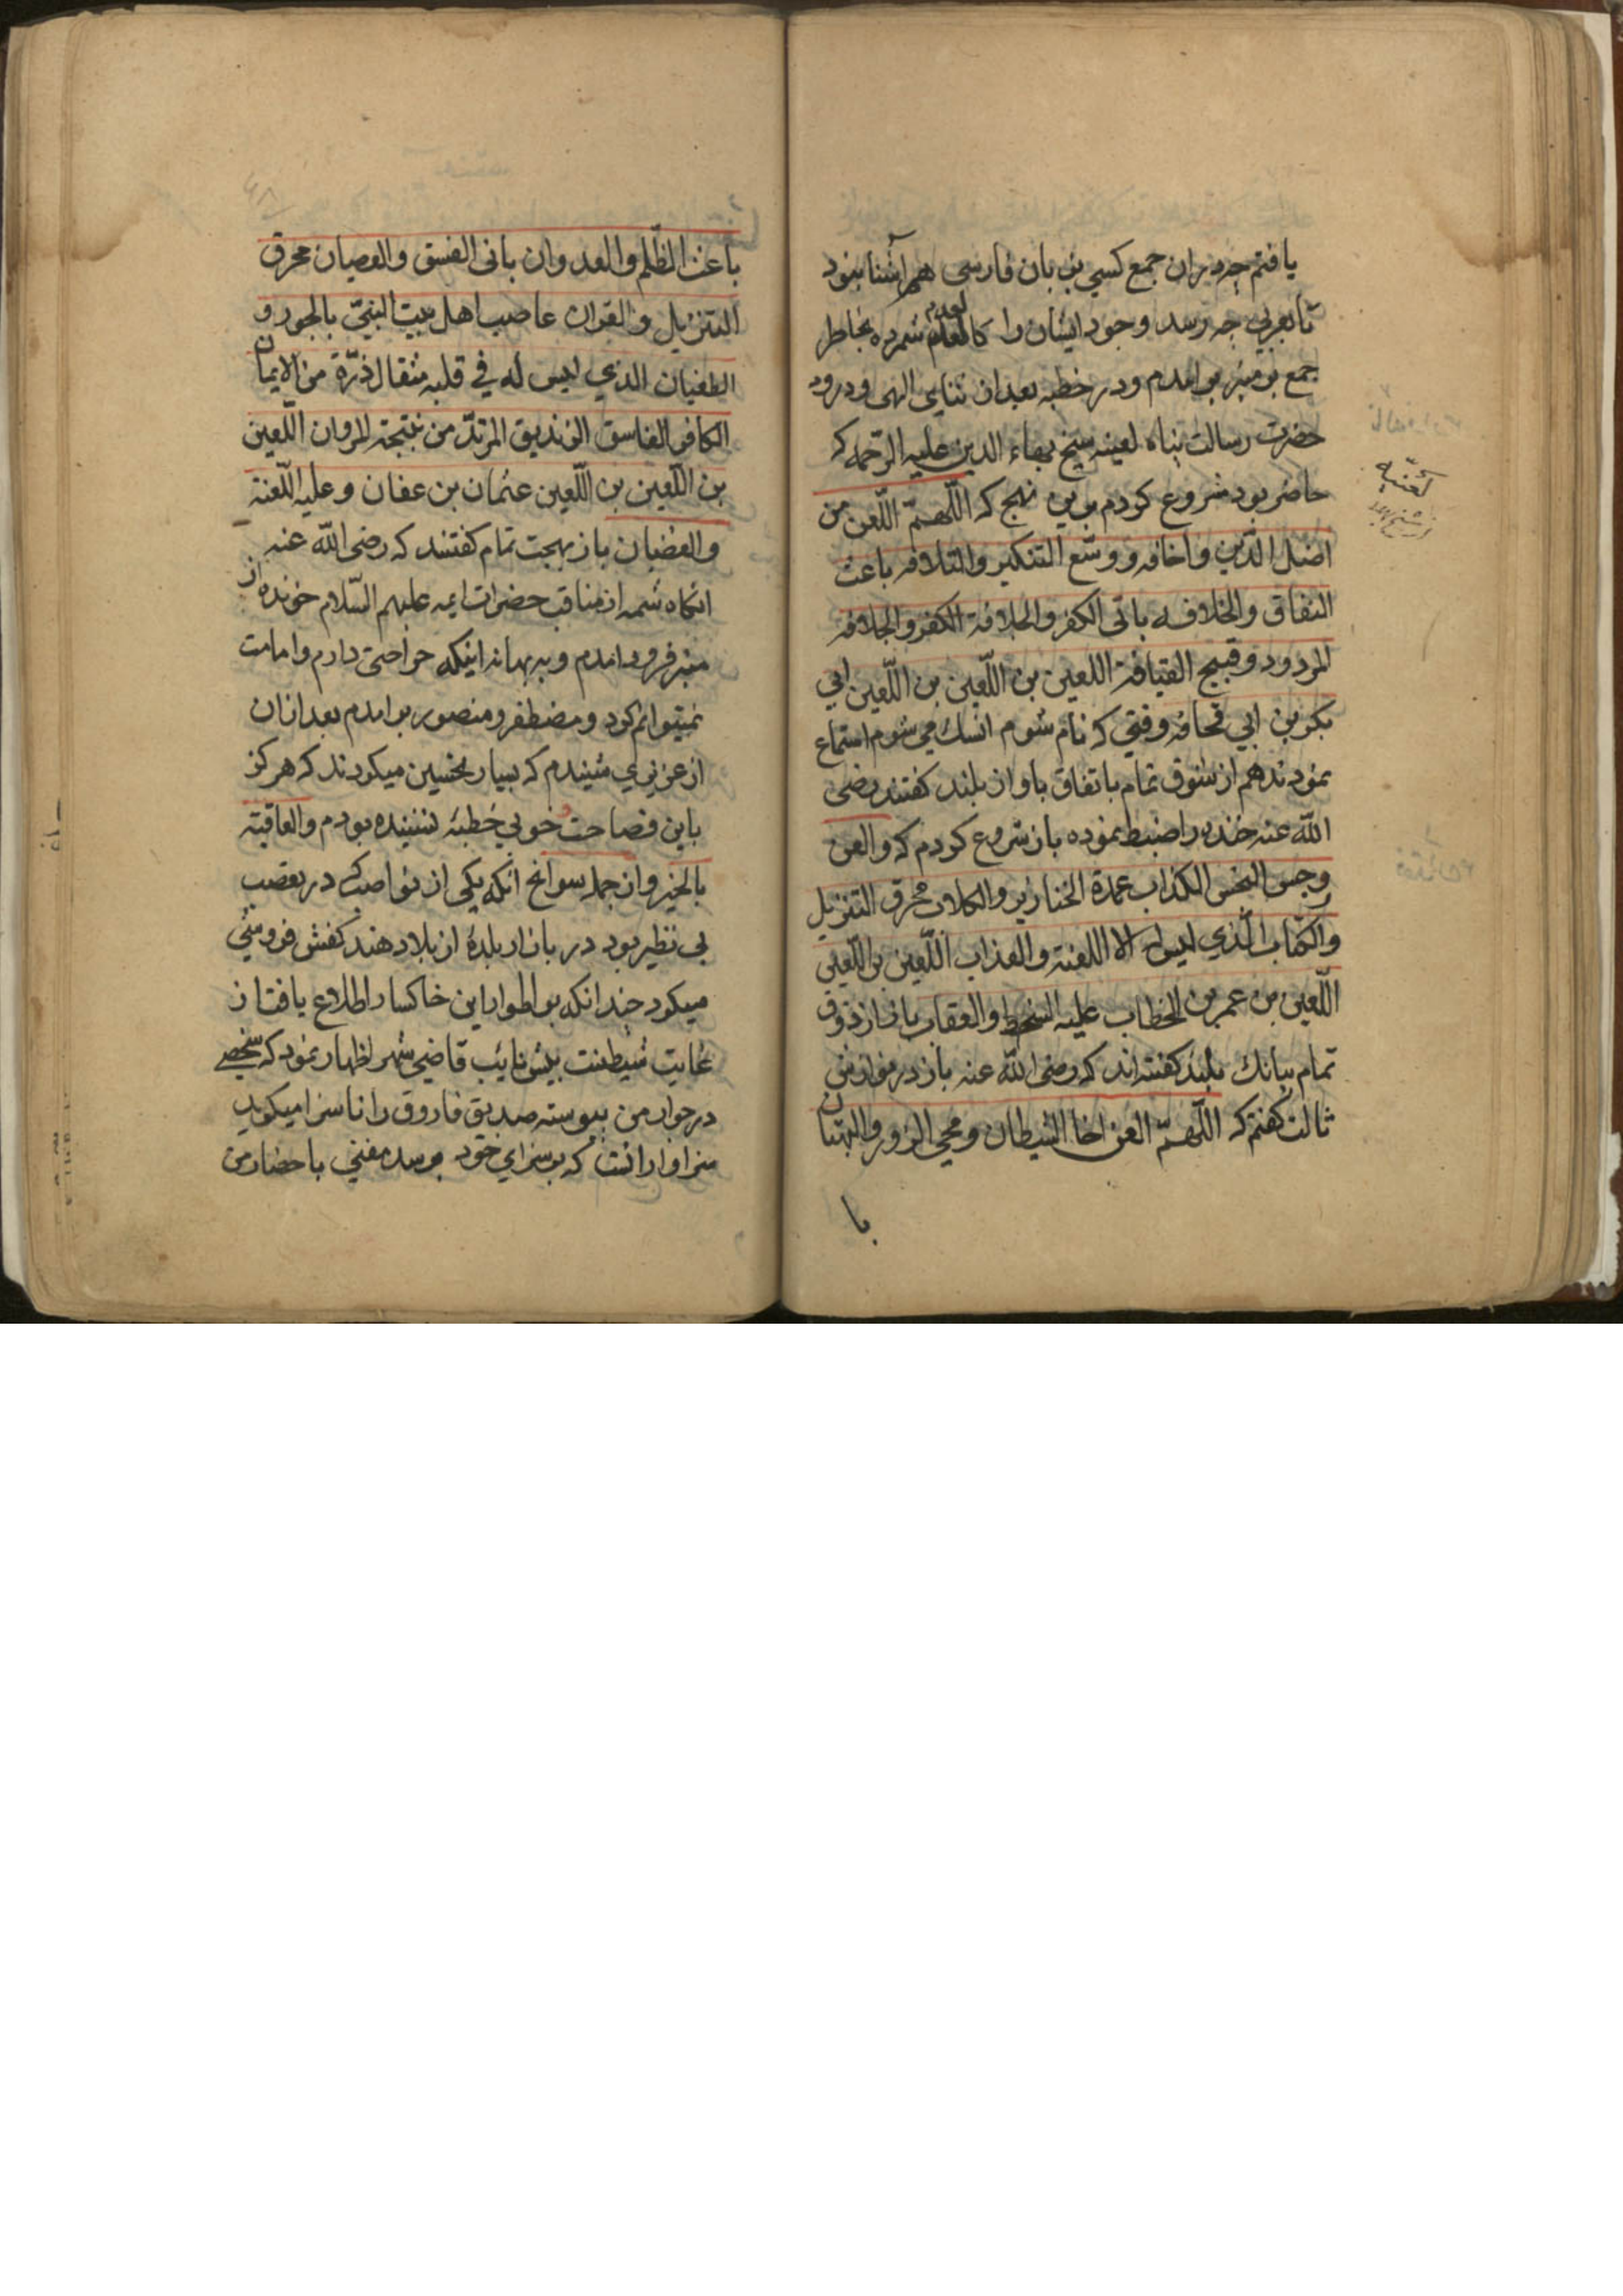 یافتم چه در ان جمع کسی بزبان فارسی هم آشنا نبود
تا بعربی چه رسد وجود ایشان را کالعدم شمرده بخاطر
جمع بر منبر بر امدم ودر خطبه بعد از ثنای الهی ودرود
حضرت رسالت پناه لعینه شیخ بهاء الدین علیه الرحمه که
حاضر بود شروع کردم بدین نهج که اللّهمّ اللّعن من
اضلّ الدّین واخافه ووسّع التنکیر والتلافه باعث
النفاق والخلافه بانی الکفر والجلافة الکفر والجلافه
المردود وقبیح القیافة اللعین بن اللّعین بن اللّعین ابی
بکر بن ابی قحافه وقتی که نام شوم انسک می شوم استماع
نمودند هم از شوق تمام باتفاق باواز بلند کفتند رضی
اللّه عنه خنده را ضبط نموده باز شروع کردم که والعن
رجس النجس الکذاب عمدة الخنازیر والکلاب محرق التنزیل
والکتاب الّذی لیس له الا اللعنة والعذاب اللّعین بن اللّعین
اللّعین بن عمر بن الخطاب علیه السخط والعقاب باز از ذوق
تمام ببانک بلند کفته اند که رضی اللّه عنه باز در موازنش
ثالث کفتم که اللّهمّ العن اخا الشیطان ومحیی الزور والبهتان
با
لعنیه
باعث الظّلم والعدوان بانی الفسق والعصیان محرق
التنزیل والقران غاصب اهل بیت النبیّ بالجور و
الطغیان الذی لیس له فی قلبه مثقال ذرّة من الایمان
الکافر الفاسق الزندیق المرتدّ من نتیجة المروان اللّعین
بن اللّعین بن اللّعین عثمان بن عفان وعلیه اللّعنة
والغضبان باز بهجت تمام کفتند که رضی اللّه عنه
انکاه شمه از مناقب حضرات ایمه علیهم السّلام خونده از
منبر فرود امدم وببهانه اینکه جراحتی دارم وامامت
نمیتوانم کرد ومضطفر ومنصور بر امدم بعد ازان
از عزیزی شنیدم که بسیار تحسین میکردند که هرکز
باین فصاحت خوبی خطبه نشنیده بودم والعاقبة
بالخیر واز جمله سوانح انکه یکی از نواصب که در تعصب
بی نظیر بود در بازار بلدۀ از بلاد هند کفش فروشی
میکرد چندانکه بر اطوار این خاکسار اطلاع یافت از
غایت شیطنت پیش نایب قاضی شهر اظهار نمود که شخصی
در جوار من پیوسته صدیق فاروق را ناسزا میکوید
سزاوار انست که بسزای خود برسد مفتی باحضار من